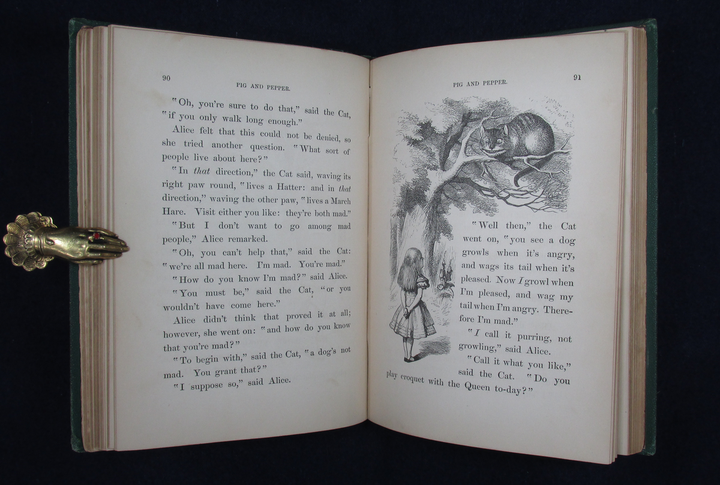 90
PIG AND PEPPER.
"Oh, you're sure to do that," said the Cat,
"if you only walk long enough."
Alice felt that this could not be denied, so
she tried another question. "What sort of
people live about here?"
"In that direction," the Cat said, waving its
right paw round, "lives a Hatter: and in that
direction," waving the other paw, "lives a March
Hare. Visit either you like: they're both mad."
"But I don't want to go among mad
people," Alice remarked.
"Oh, you can't help that," said the Cat:
"we're all mad here. I'm mad. You're mad."
"How do you know I'm mad?" said Alice.
"You must be," said the Cat, "or you
wouldn't have come here."
Alice didn't think that proved it at all;
however, she went on: "and how do you know
that you're mad?"
"To begin with," said the Cat, "a dog's not
mad. You grant that?"
"I suppose so," said Alice.
PIG AND PEPPER.
91
"Well then," the Cat
went on, "you see a dog
growls when it's angry,
and wags its tail when it's
pleased. Now I growl when
I'm pleased, and wag my
tail when I'm angry. There-
fore I'm mad."
"I call it purring, not
growling," said Alice.
"Call it what you like,"
said the Cat. "Do you
play croquet with the Queen to-day?"